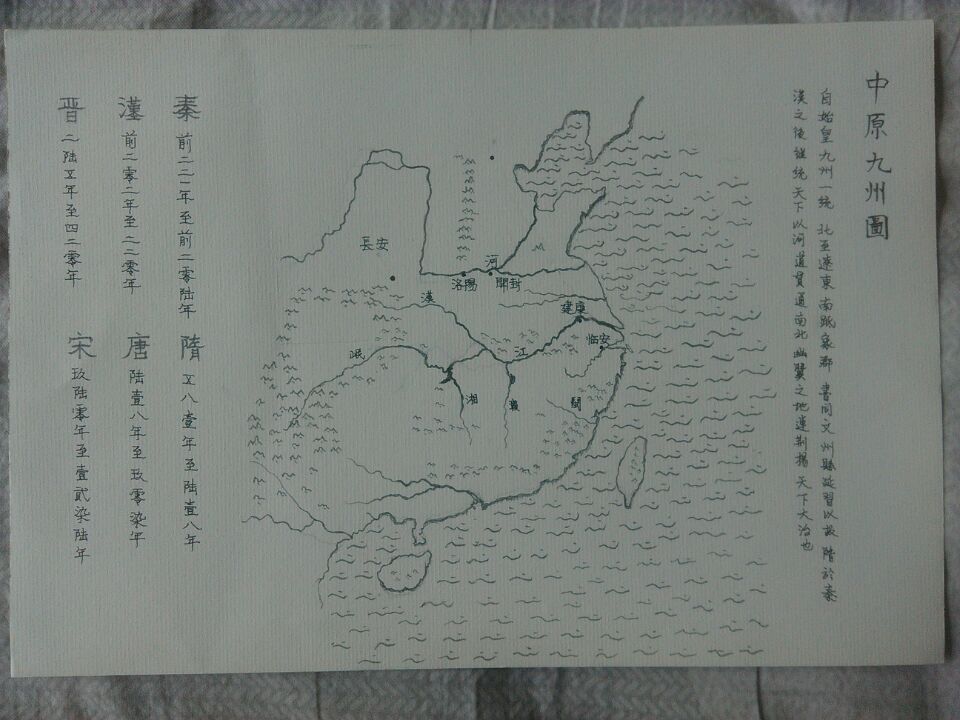 中原九州圖
自始皇九州一统 北至遼東 南抵象郡 書同文 州縣政習以故 隋於秦
漢之後继统天下以河道貫通南北幽冀之地連荆揚 天下大治也
長安
河
洛陽
開封
漢
建康
临安
岷
江
湘
贛
閩
秦 前二二一年至前二零陆年
漢 前二零二年至二二零年
晋 二陆五年至四二零年
隋 五八壹年至陆壹八年
唐 陆壹八年至玖零柒年
宋 玖陆零年至壹貳柒陆年